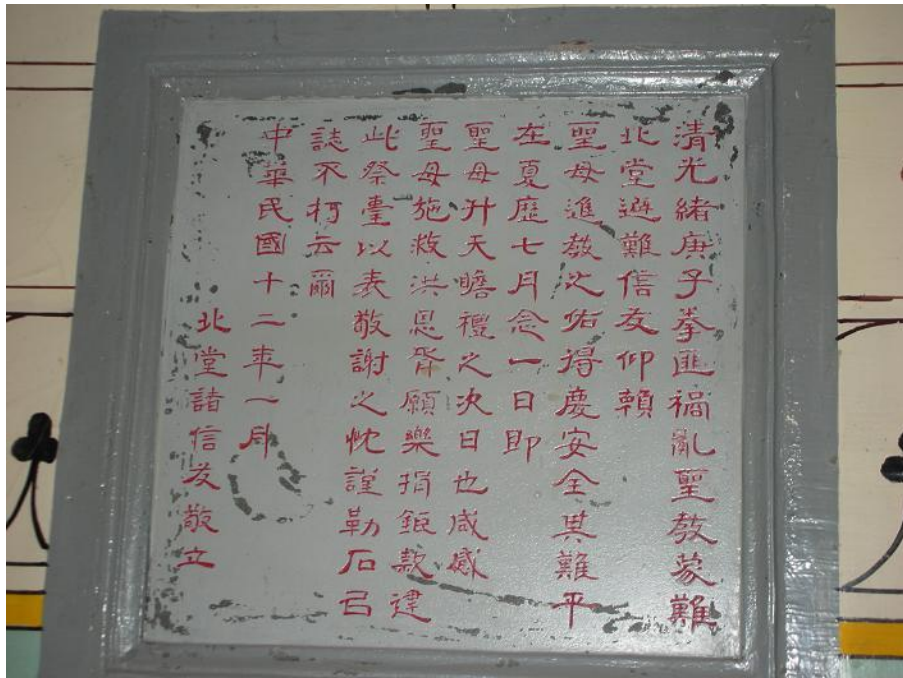 清光緒庚子拳匪禍亂聖教蒙難
北堂避難信友仰賴
聖母進教之佑得慶安全其難平
在夏歷七月念一日即
聖母升天瞻禮之次日也咸感
聖母施救洪恩胥願樂捐鉅款建
此祭臺以表敬謝之忱謹勒石㠯
誌不朽云爾
中華民國十二年一月
北堂諸信友敬立